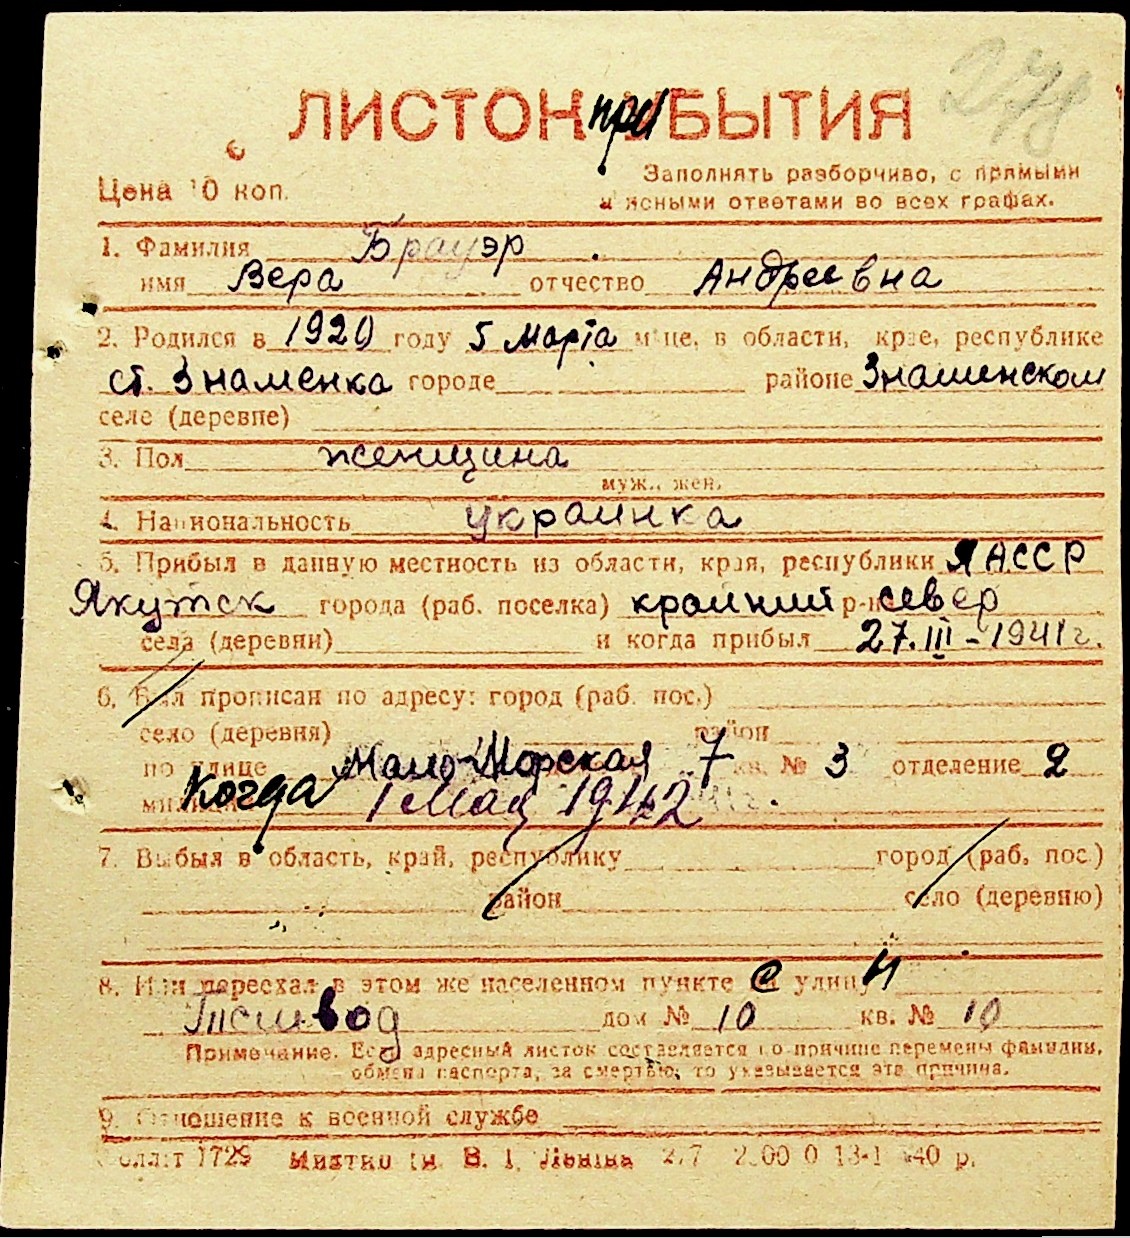 278
ЛИСТОК при УБЫТИЯ
Цена 10 коп.
Заполнять разборчиво, с прямыми
и ясными ответами во всех графах.
1. Фамилия Брауэр
имя Вера отчество Андреевна
2. Родился в 1920 году 5 марта м-це, в области, крае, республике
ст. Знаменка городе районе Знаминском
селе (деревне)
3. Пол женщина
муж., жен.
4. Национальность украинка
5. Прибыл в данную местность из области, края, республики ЯАССР
Якутск города (раб. поселка) крайний р-на север
села (деревни) и когда прибыл 27.III-1941г.
6. Был прописан по адресу: город (раб. пос.)
село (деревня) район
по улице Мало-Морская 7 кв. № 3 отделение 2
милиции Когда 1 Мая 1942
7. Выбыл в область, край, республику город (раб. пос.)
район село (деревню)
8. Или переехал в этом же населенном пункте с улицы
дом № 10 кв. № 10
Примечание. Если адресный листок составляется по причине перемены фамилии,
обмена паспорта, за смертью, то указывается эта причина.
9. Отношение к военной службе
1729 В. І. Леніна